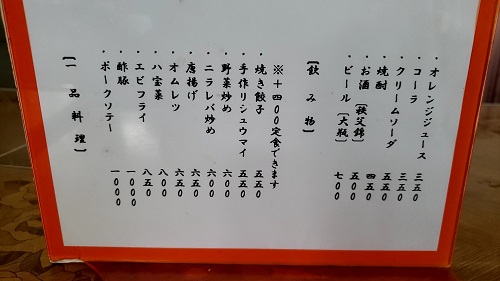 【一品料理】
・ポークソテー 一000
・酢豚 一000
・エビフライ 八五0
・八宝菜 八00
・オムレツ 六五0
・唐揚げ 六五0
・ニラレバ炒め 六00
・野菜炒め 六00
・手作りシュウマイ 五五0
・焼き餃子 五五0
※+四00定食できます
【飲み物】
・ビール【大瓶】 七00
・お酒【秩父錦】 五00
・焼酎 四五0
・クリームソーダ 五五0
・コーラ 三五0
・オレンジジュース 三五0